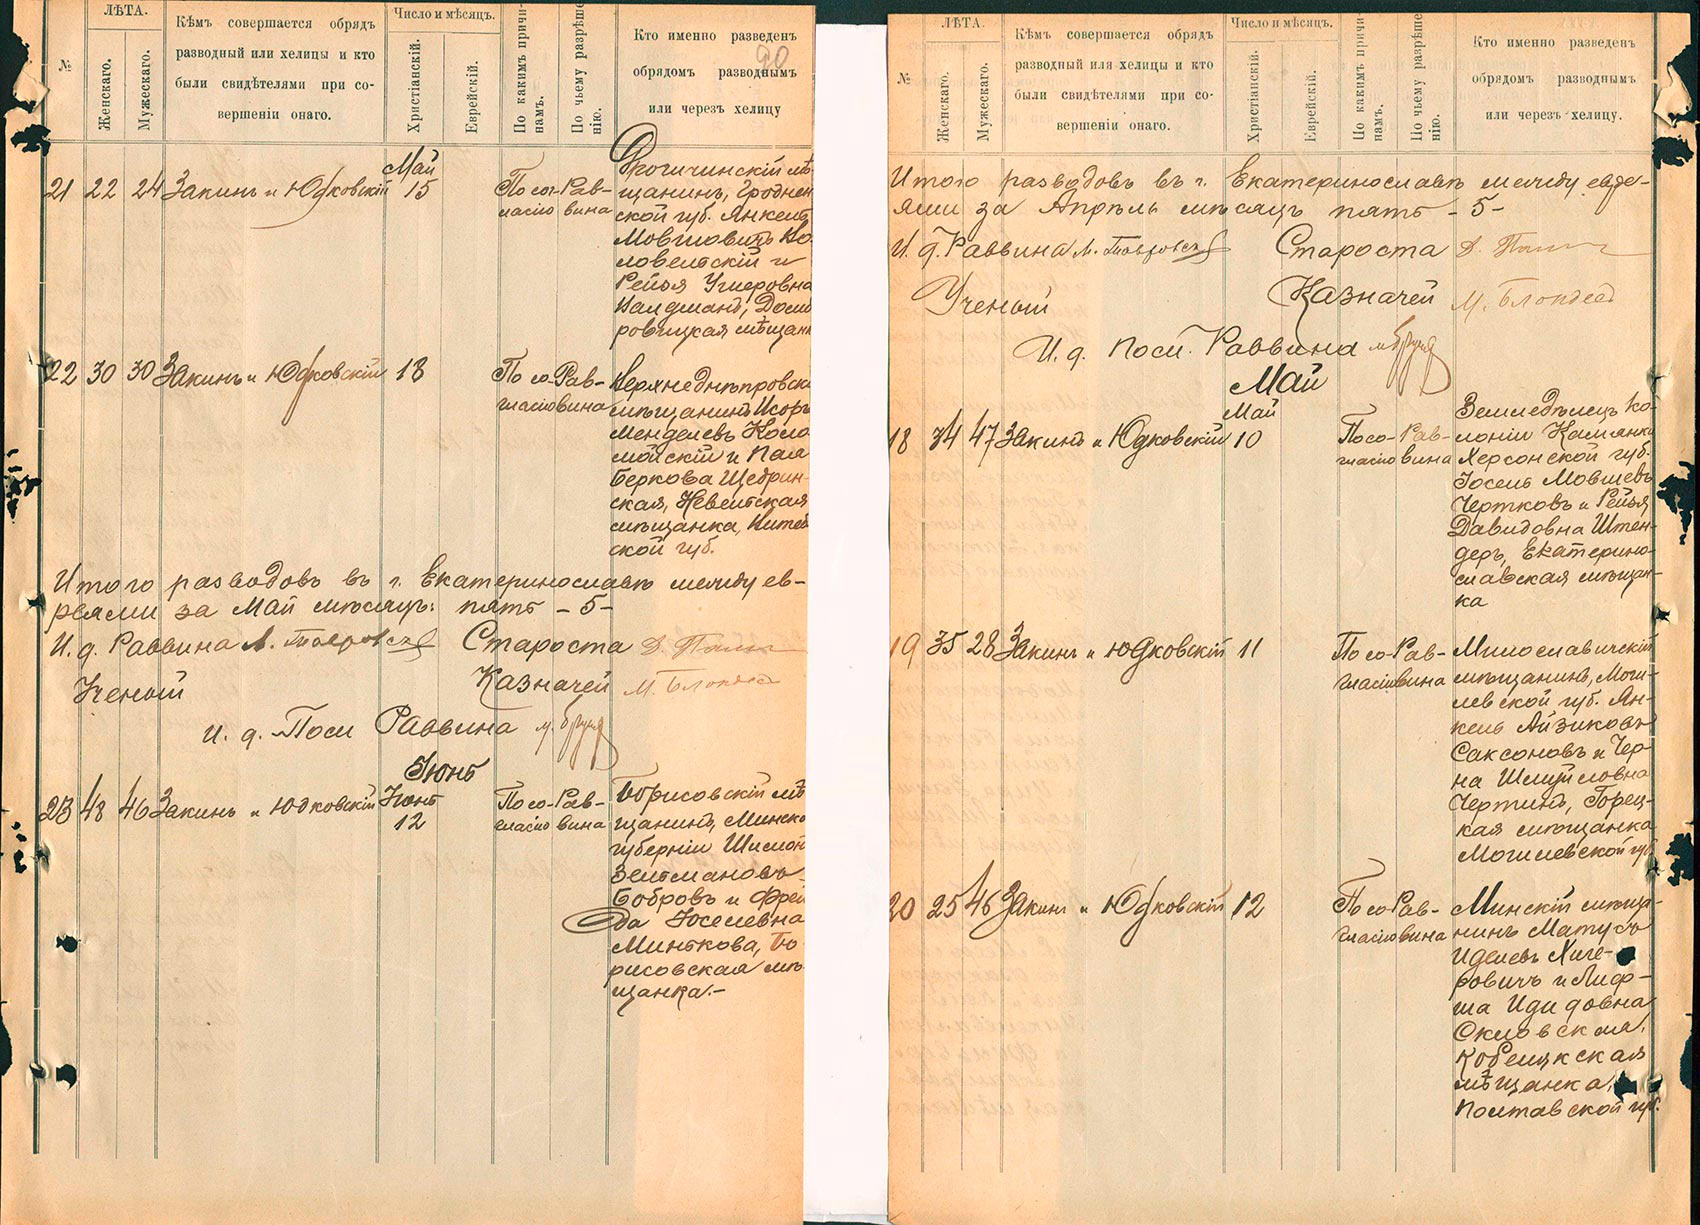 ЛѢТА.
Число и мѣсяцъ.
№
Женскаго.
Мужескаго.
Кѣмъ совершается обрядъ
разводный или хелицы и кто
были свидѣтелями при со-
вершеніи онаго.
Христіанскій.
Еврейскій.
По какимъ причи-
намъ.
По чьему разрѣше
нію.
Кто именно разведенъ
обрядомъ разводнымъ
или черезъ хелицу
90
Май
21 22 24 Закинъ и Юдковскій 15 По сог- Рав-
ласію вина
Дрогичинскій мѣ-
щанинъ, Гроднен
ской губ. Янкель
Мовшовичъ Ко-
ловейскій и
Рейзя
Вайсманъ,
ровицкая мѣщанк
22 30 30 Закинъ и Юдковскій 18 По со- Рав-
гласію вина
Верхнеднѣпровск
мѣщанинъ Исоръ
Менделевъ Коло
мойскій и Пая
Беркова Щедрин-
ская, Невельская
мѣщанка, Витеб
ской губ.
Итого разводовъ въ г. Екатеринославѣ между ев-
реями за Май мѣсяцъ: пять - 5 -
И. д. Раввина Староста
Ученый Казначей
И. д. Пом Раввина
Іюнь
23 48 46 Закинъ и Юдковскій Іюнь По со- Рав-
12 гласію вина
Борисовскій мѣ
щанинъ, Минско
губерніи Шимон
Зельмановъ
Бобровъ и Фрей
да Іоселевна
Минькова, Бо-
рисовская мѣ-
щанка.-
ЛѢТА.
Число и мѣсяцъ.
№
Женскаго.
Мужескаго.
Кѣмъ совершается обрядъ
разводный или хелицы и кто
были свидѣтелями при со-
вершеніи онаго.
Христіанскій.
Еврейскій.
По какимъ причи-
намъ.
По чьему разрѣше
нію.
Кто именно разведенъ
обрядомъ разводнымъ
или черезъ хелицу.
Итого разводовъ въ г. Екатеринославѣ между евре-
ями за Апрѣль мѣсяцъ пять - 5 -
И. д. Раввина Староста
Ученый Казначей
И. д. Пом. Раввина
Май
Май
18 34 47 Закинъ и Юдковскій 10 По со- Рав-
гласію вина
Земледѣлецъ ко-
лоніи Камянка
Херсонской губ.
Іосель Мовшевъ
Чертковъ и Рейзя
Давидовна Штен-
деръ, Екатерино-
славская мѣщан-
ка
19 35 28 Закинъ и Юдковскій 11 По со- Рав-
гласію вина
Милославичскій
мѣщанинъ, Моги-
левской губ. Ян-
кель Айзиковъ
Саксоновъ и Чер-
на Шмуйловна
Чертинъ, Горец-
кая мѣщанка
Могилевской губ.
20 25 46 Закинъ и Юдковскій 12 По со- Рав-
гласію вина
Минскій мѣща-
нинъ Матусъ
Иделевъ Хиге-
ровичъ и Лиф-
ша Идидовна
Окловская,
Кобеляцкская
мѣщанка,
Полтавской губ.